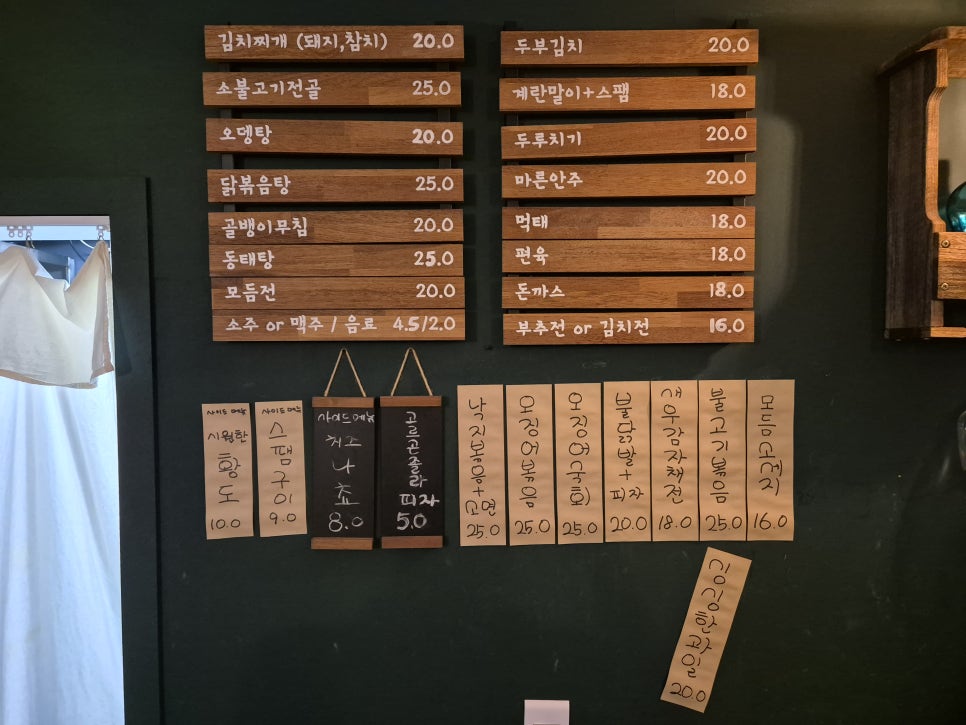 김치찌개 (돼지,참치) 20.0
소불고기전골 25.0
오뎅탕 20.0
닭볶음탕 25.0
골뱅이무침 20.0
동태탕 25.0
모듬전 20.0
소주 or 맥주 / 음료 4.5/2.0
두부김치 20.0
계란말이+스팸 18.0
두루치기 20.0
마른안주 20.0
먹태 18.0
편육 18.0
돈까스 18.0
부추전 or 김치전 16.0
사이드메뉴
시원한
황도
10.0
사이드메뉴
스팸구이
9.0
사이드메뉴
치즈
나쵸
8.0
고르곤졸라
피자
5.0
낙지볶음+
소면
25.0
오징어볶음
25.0
오징어국회
25.0
불닭발+
피자
20.0
새우감자채전
18.0
불고기볶음
25.0
모듬소세지
16.0
싱싱한과일
20.0